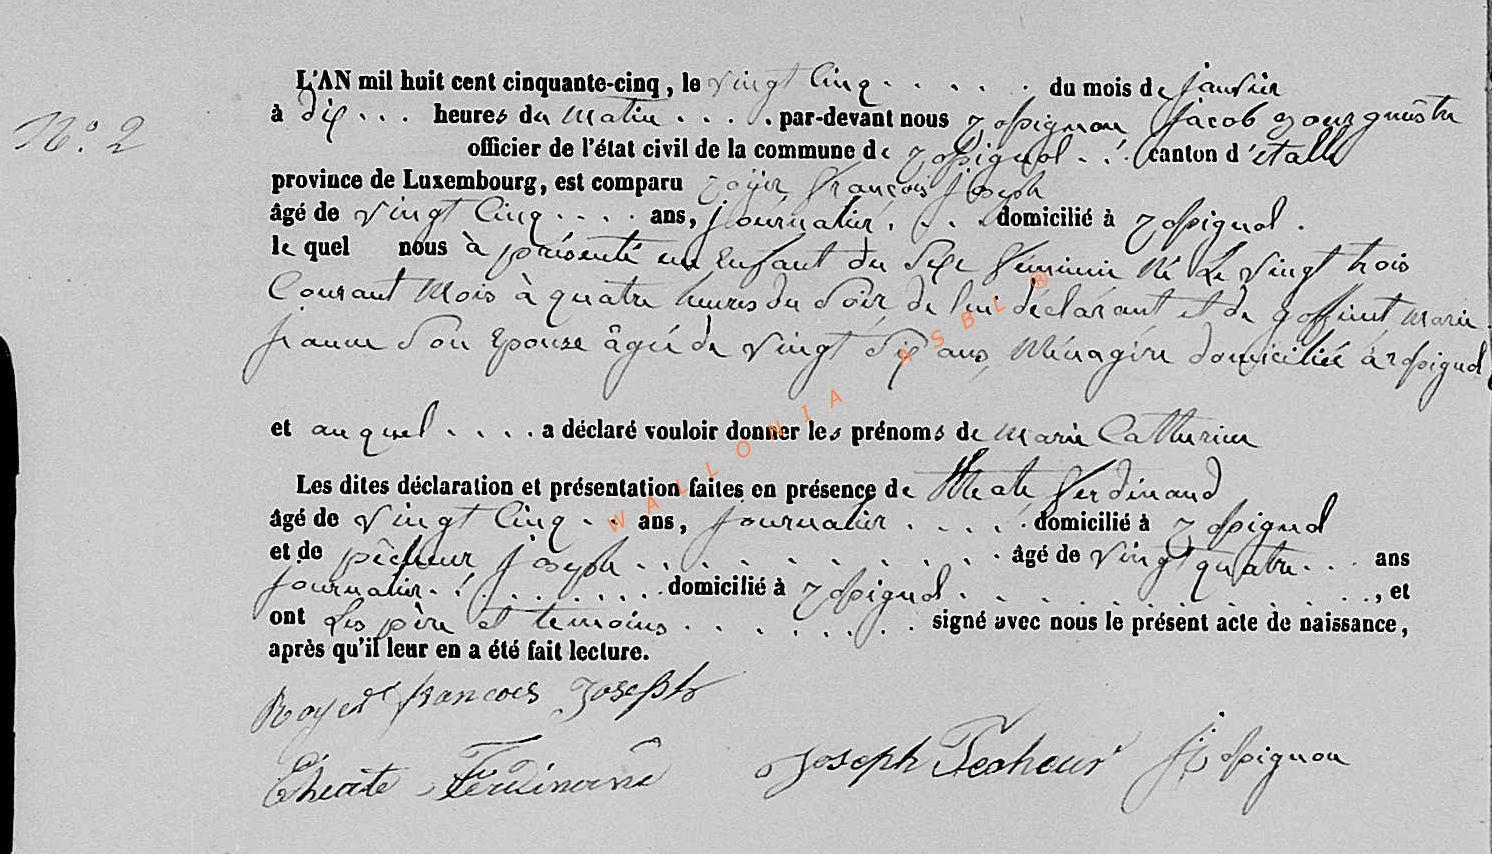 L'AN mil huit cent cinquante-cinq, le vingt cinq . . . . . du mois de janvier
à dix . . . heures du matin . . . . par-devant nous rossignon jacob bourgmêstre
N.° 2
officier de l'état civil de la commune de rossignol . . . canton d'étalle
province de Luxembourg, est comparu royer françois joseph
âgé de vingt cinq . . . . ans, journalier . . . domicilié à rossignol .
le quel nous à présenté un enfant du sexe féminin né le vingt trois
courant mois à quatre heures du soir, de lui déclarant et de goffinet marie
jeanne son epouse âgée de vingt six ans, ménagère domiciliée à rossignol
et auquel . . . . a déclaré vouloir donner les prénoms de marie Catherine
Les dites déclaration et présentation faites en présence de theate ferdinand
âgé de vingt cinq . . ans, journalier . . . . . domicilié à rossignol
et de pêcheur joseph . . . . . . . . . . âgé de vingt quatre . . . ans
journalier . . . . . . . . domicilié à rossignol . . . . . . . . . . . , et
ont les père et temoins . . . . . . . . signé avec nous le présent acte de naissance,
après qu'il leur en a été fait lecture.
Royer francois Joseph
Theate Ferdinand Joseph Pecheur J rossignon
WALLONIA ASBL ®